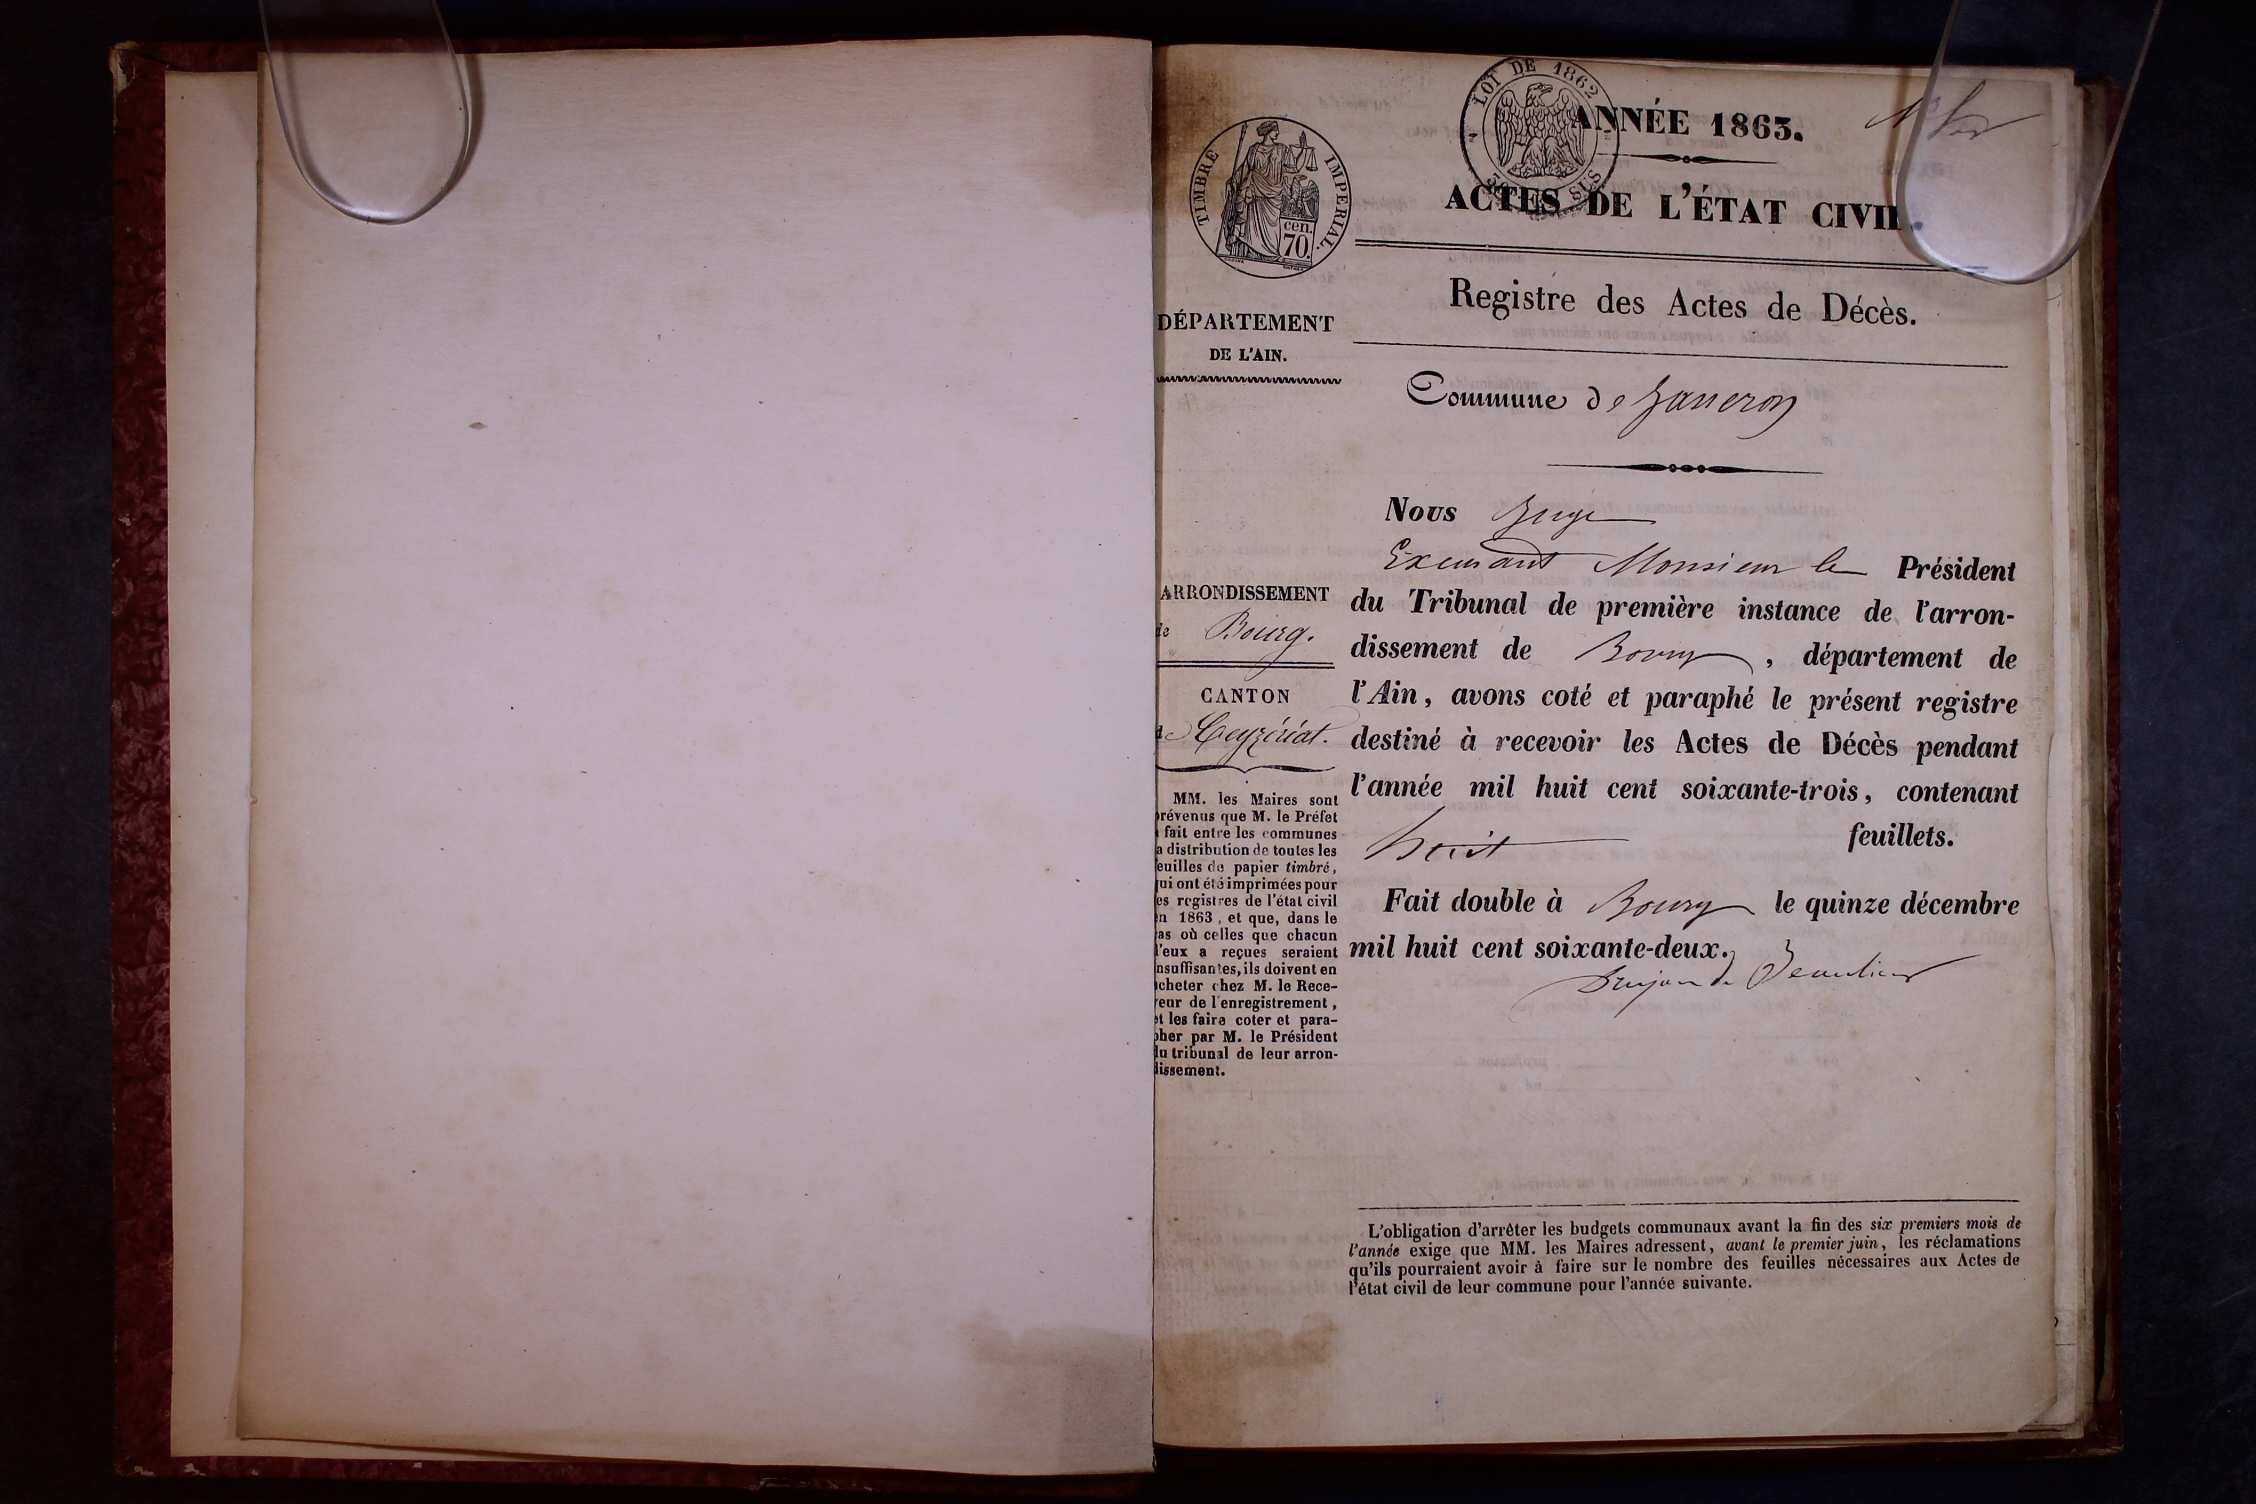 LOI DE 1862
ANNÉE 1863.
TIMBRE IMPERIAL.
cen.
70.
ACTES DE L'ÉTAT CIVIL.
Registre des Actes de Décès.
DÉPARTEMENT
DE L'AIN.
Commune de
ARRONDISSEMENT
de Bourg.
CANTON
de Ceyzériat.
MM. les Maires sont
prévenus que M. le Préfet
a fait entre les communes
la distribution de toutes les
feuilles de papier timbré,
qui ont été imprimées pour
les registres de l'état civil
en 1863, et que, dans le
cas où celles que chacun
d'eux a reçues seraient
insuffisantes, ils doivent en
acheter chez M. le Rece-
veur de l'enregistrement,
et les faire coter et para-
pher par M. le Président
du tribunal de leur arron-
dissement.
Nous Juge
Excusant Monsieur le Président
du Tribunal de première instance de l'arron-
dissement de Bourg, département de
l'Ain, avons coté et paraphé le présent registre
destiné à recevoir les Actes de Décès pendant
l'année mil huit cent soixante-trois, contenant
huit feuillets.
Fait double à Bourg le quinze décembre
mil huit cent soixante-deux.
L'obligation d'arrêter les budgets communaux avant la fin des six premiers mois de
l'année exige que MM. les Maires adressent, avant le premier juin, les réclamations
qu'ils pourraient avoir à faire sur le nombre des feuilles nécessaires aux Actes de
l'état civil de leur commune pour l'année suivante.